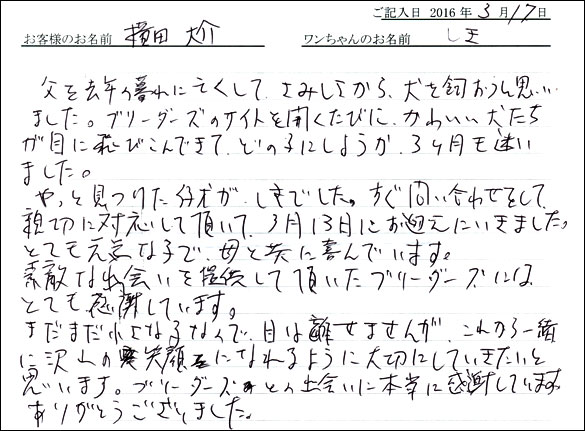 ご記入日 2016年 3月17日
お客様のお名前 横田 大介 ワンちゃんのお名前 しき
父を去年の暮れに亡くして、さみしさから、犬を飼おうと思い
ました。ブリーダーズのサイトを開くたびに、かわいい犬たち
が目に飛びこんできて、どの子にしようか、3ヶ月も迷い
ました。
やっと見つけた仔犬が、しきでした。すぐ問い合わせをして、
親切に対応して頂いて、3月13日にお迎えにいきました。
とても元気な子で、母と共に喜んでいます。
素敵な出会いを提供して頂いたブリーダーズには、
とても感謝しています。
まだまだ小さな子なので、目は離せませんが、これから一緒
に沢山の笑顔になれるように大切にしていきたいと
思います。ブリーダーズとの出会いに本当に感謝しています。
ありがとうございました。